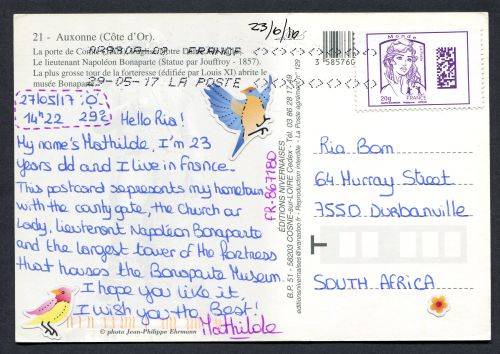 21 - Auxonne (Côte d'Or).
La porte de
Le lieutenant Napoléon Bonaparte (Statue par Jouffroy - 1857).
La plus grosse tour de la forteresse (édifiée par Louis XI) abrite le
musée Bonaparte
FRANCE
29-05-17 LA POSTE
23/6/
3 58576
Monde
20g
FRANCE
27/05/17
14h22 29°
Hello Ria!
My name's Mathilde, I'm 23
years old and I live in France.
This postcard represents my hometown
with the county gate, the Church our
Lady, lieutenant Napoléon Bonaparte
and the largest tower of the fortress
that houses the Bonaparte Museum.
I hope you like it,
I wish you the Best!
Mathilde
FR-867180
ÉDITIONS NIVERNAISES
B.P. 51 - 58203 COSNE-sur-LOIRE Cedex - Tél. 03 86 28 17 89
editionsnivernaises@wanadoo.fr - Reproduction interdite
Ria Bom
64 Murray Street
7550 Durbanville
SOUTH AFRICA
© photo Jean-Philippe Ehrmann